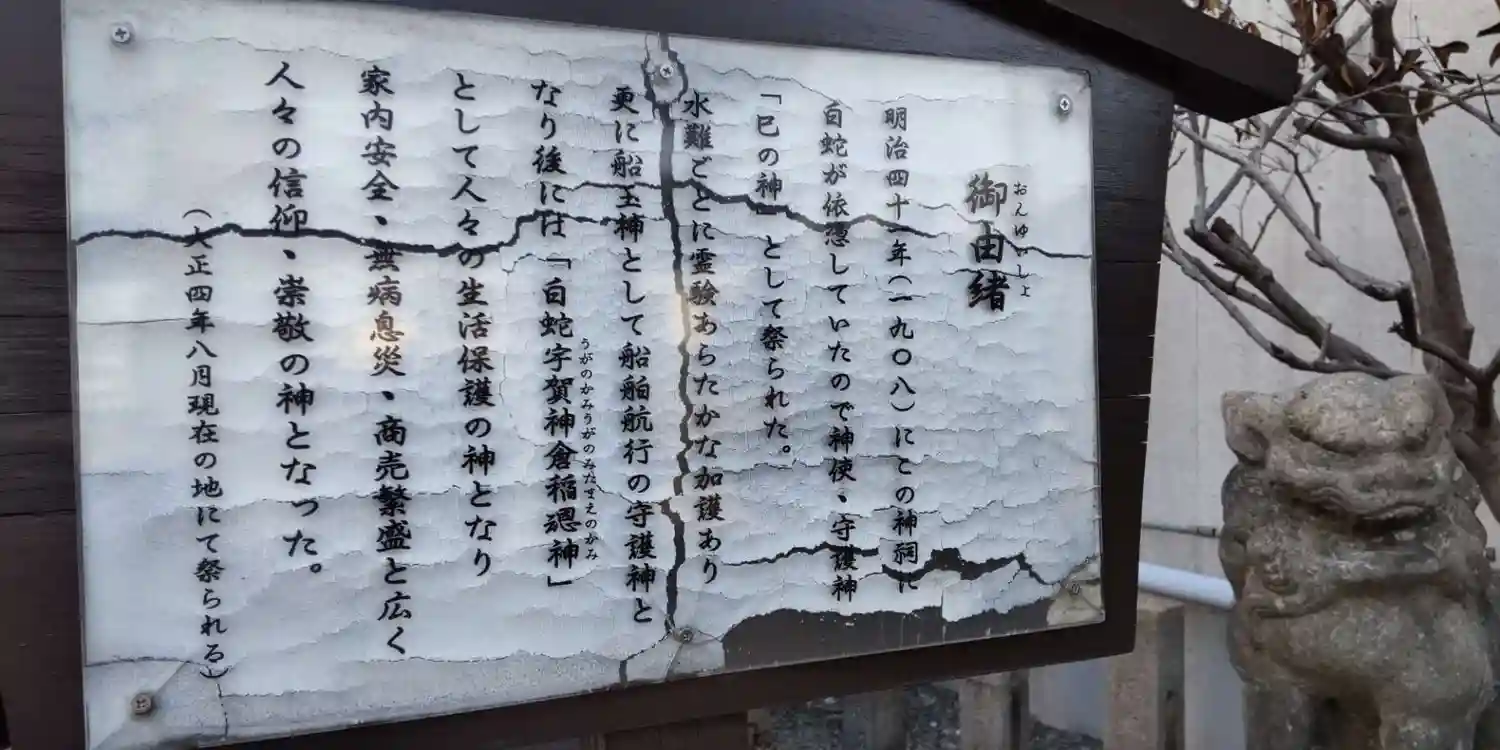 おんゆいしょ
御由緒
明治四十一年(一九〇八)にこの神祠に
白蛇が依憑していたので神使、守護神
「巳の神」として祭られた。
水難ごとに霊験あらたかな加護あり
更に船玉神として船舶航行の守護神と
うがのかみうがのみたまえのかみ
なり後には「白蛇宇賀神倉稲魂神」
として人々の生活保護の神となり
家内安全、無病息災、商売繁盛と広く
人々の信仰、崇敬の神となった。
(大正四年八月現在の地にて祭られる)